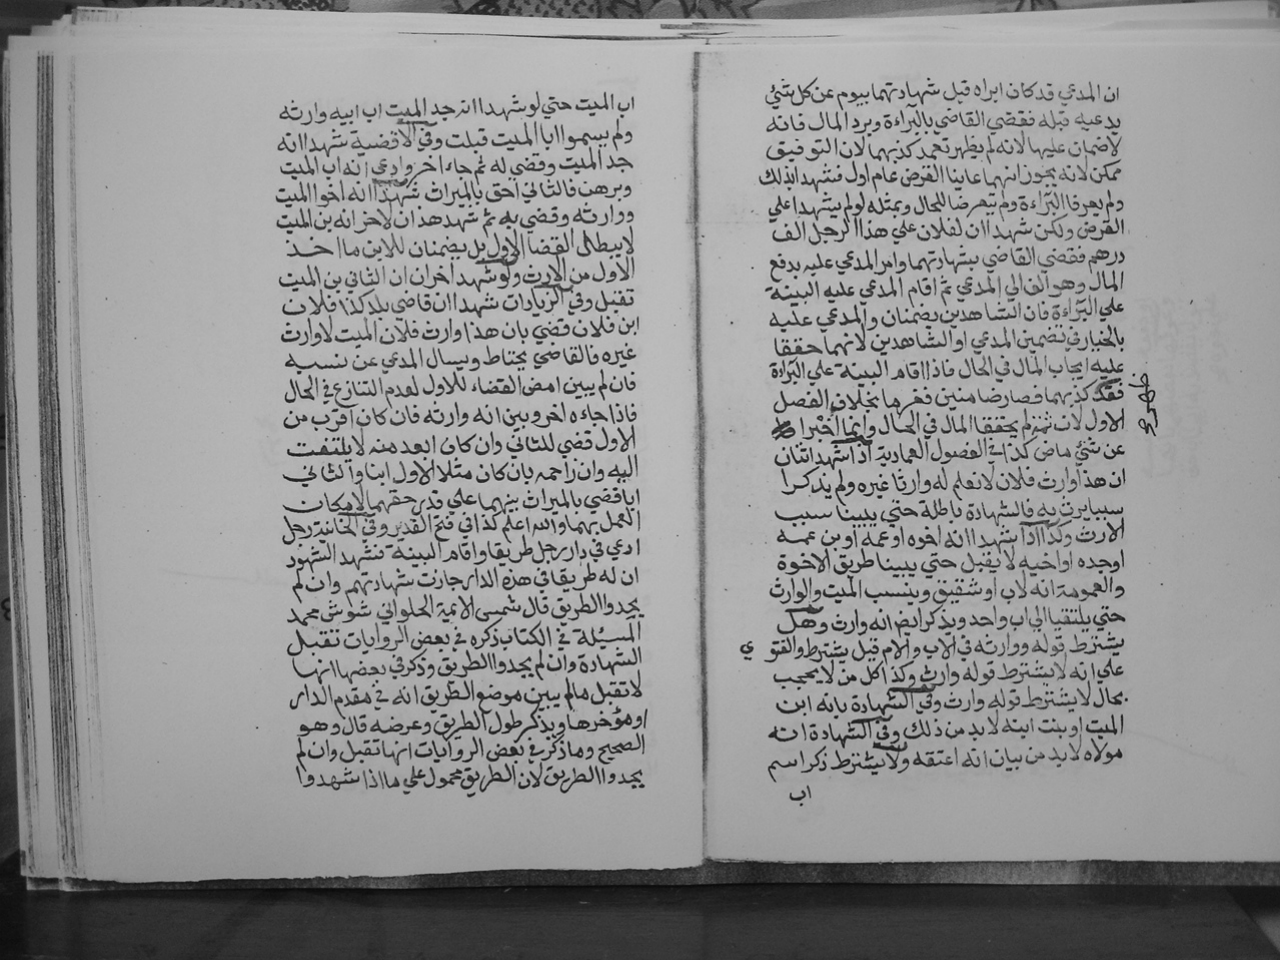 ان المدعي قد كان ابراه قبل شهادتهما بيوم عن كل شئ
يدعيه قبله فقضي القاضي بالبراءة وبرد المال فانه
لاضمان عليها لانه لم يظهر تعمد كذبهما لان التوفيق
ممكن لانه يجوز انهما عاينا القرض عام اول فشهدا بذلك
ولم يعرفا البراءة ولم يتعرضا للحال وبمثله لو لم يشهدا علي
القرض ولكن شهدا ان لفلان علي هذا الرجل الف
درهم فقضي القاضي بشهادتهما وامر المدعي عليه بدفع
المال وهو الف الي المدعي ثم اقام المدعي عليه البينة
علي البراءة فان الشاهدين يضمنان والمدعي عليه
بالخيار في تضمين المدعي او الشاهدين لانهما حققا
عليه ايجاب المال في الحال فاذا اقام البينة علي البراءة
فقد كذبهما فصارضامنين فغرما بخلاف الفصل
الاول لان ثمة لم يحققا المال في الحال وانما اخبرا
عن شئ ماض كذا في الفصول العمادية اذا شهد اثنان
ان هذا وارث فلان لانعلم له وارثا غيره ولم يذكرا
سببا يرث به فالشهادة باطلة حتي يبينا سبب
الارث وكذا اذا شهدا انه اخوه او عمه او بن عمه
او جده او اخيه لا يقبل حتي يبينا طريق الاخوة
والعمومة انه لاب او شقيق وينسب الميت والوارث
حتي يلتقيا الي اب واحد ويذكر ايضا انه وارث وهل
يشترط قوله ووارثه في الاب والام قيل يشترط والفتوي
علي انه لايشترط قوله وارث وكذا كل من لا يحجب
بحال لايشترط قوله وارث وفي الشهادة بانه ابن
الميت او بنت ابنه لابد من ذلك وفي الشهادة انه
مولاه لابد من بيان انه اعتقه ولا يشترط ذكر اسم
اب
اب الميت حتي لو شهدا انه جد الميت اب ابيه وارثه
ولم يسموا ابا الميت قبلت وفي الاقضية شهدا انه
جد الميت وقضي له ثم جاء اخر وادعي انه اب الميت
وبرهن فالثاني احق بالميراث شهدا انه اخو الميت
ووارثه وقضي به ثم شهد هذان لاخر انه بن الميت
لايبطل القضا الاول بل يضمنان للابن ما اخذ
الاول من الارث ولو شهد اخران ان الثاني بن الميت
تقبل وفي الزيادات شهدا ان قاضي بلد كذا فلان
ابن فلان قضي بان هذا وارث فلان الميت لا وارث
غيره فالقاضي يحتاط ويسال المدعي عن نسبه
فان لم يبين امض القضاء للاول لعدم التنازع في الحال
فاذا جاءه اخر وبين انه وارثه فان كان اقرب من
الاول قضي للثاني وان كان ابعد منه لايلتفت
اليه وان زاحمه بان كان مثلا الاول ابنا والثاني
ابا قضي بالميراث بينهما علي قدر حقهما لامكان
العمل بهما والله اعلم كذا في فتح القدير وفي الخانية رجل
ادعي في دار رجل طريقا واقام البينة فشهد الشهود
ان له طريقا في هذه الدار جازت شهادتهم وان لم
يجدوا الطريق قال شمس الائمة الحلواني شوش محمد
المسئلة في الكتاب ذكره في بعض الروايات تقبل
الشهادة وان لم يجدوا الطريق وذكر في بعضها انها
لاتقبل مالم يبين موضع الطريق انه في مقدم الدار
او مؤخرها ويذكر طول الطريق وعرضه قال وهو
الصحيح وما ذكر في بعض الروايات انها تقبل وان لم
يجدوا الطريق لان الطريق محمول علي ما اذا شهدوا